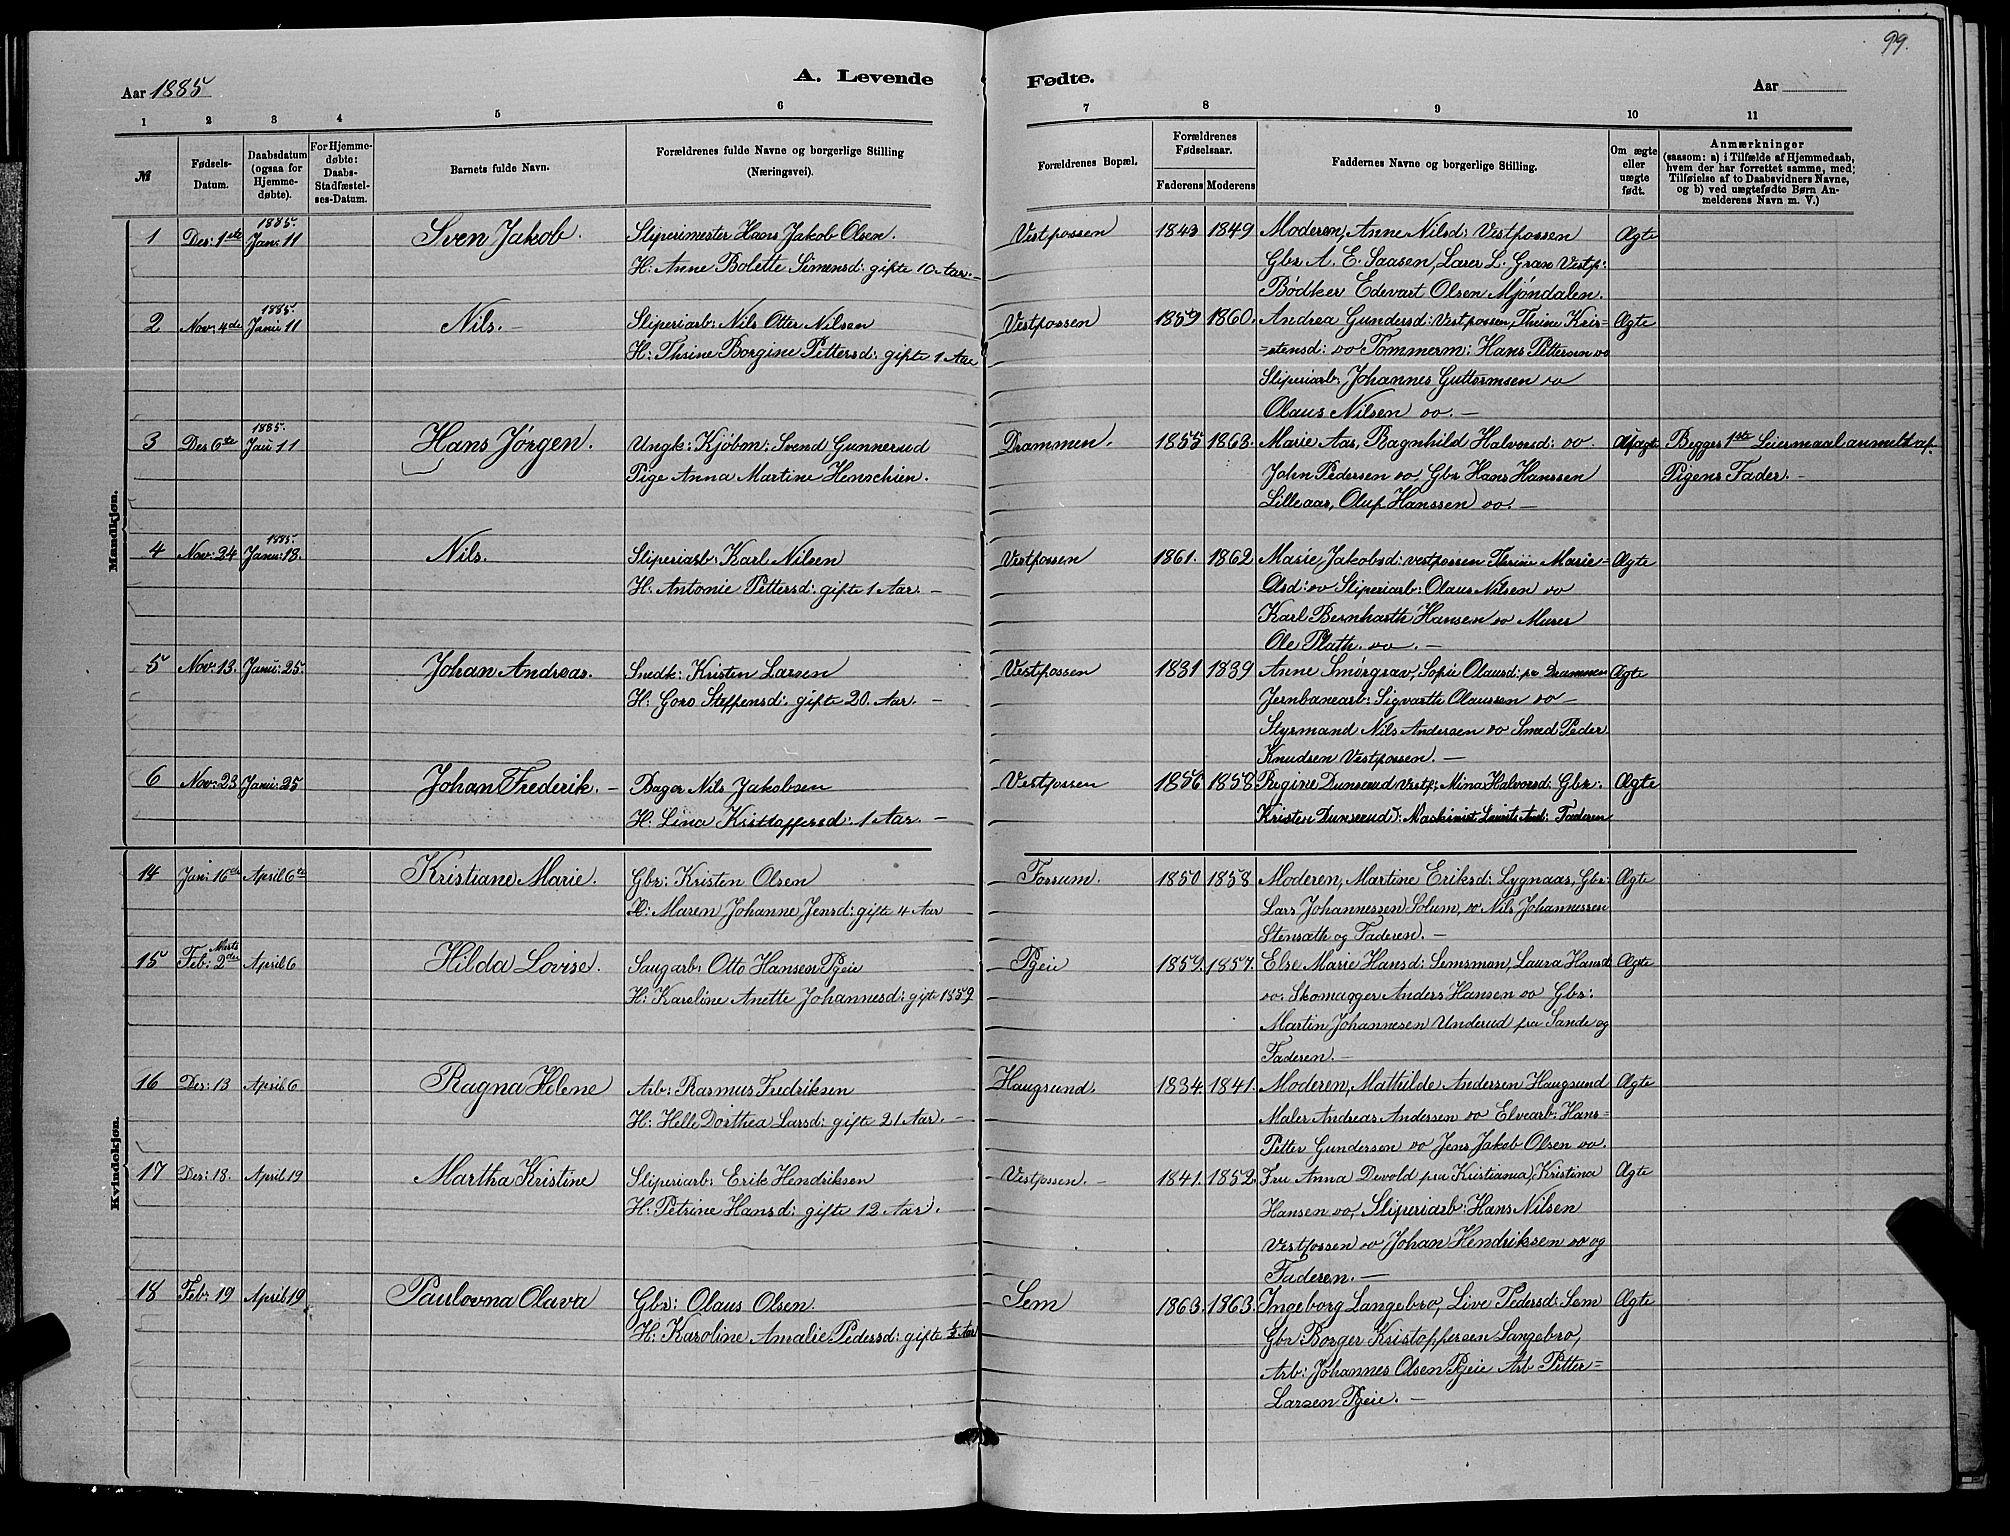 99.
Aar 1885
A. Levende Fødte.
Aar
1 2 3 4 5 6 7 8 9 10 11
№
Fødsels-Datum.
Daabsdatum (ogsaa for Hjemme-døbte).
For Hjemme-døbte: Daabs-Stadfæstel-ses-Datum.
Barnets fulde Navn.
Forældrenes fulde Navne og borgerlige Stilling (Næringsvei).
Forældrenes Bopæl.
Forældrenes Fødselsaar.
Faderens Moderens
Faddernes Navne og borgerlige Stilling.
Om ægte eller uægte født.
Anmærkninger (saasom: a) i Tilfælde af Hjemmedaab, hvem der har forrettet samme, med Tilføielse af to Daabsvidners Navne, og b) ved uægtefødte Børn An-melderens Navn m. V.)
Mandkjøn.
1885.
1 Des: 1ste Jan: 11 Sven Jakob. Sliperimester Hans Jakob Olsen. Vestfossen 1843 1849 Moderen, Anne Nilsd: Vestfossen Ægte
H: Anne Bolette Simensd: gifte 10 Aar.- Gbr A. E. Saasen, Lærer L. Gran Vestf:
Bødker Edevart Olsen Mjøndalen.
1885.
2 Nov: 4de Janu: 11 Nils.- Sliperiarb: Nils Otter Nilsen Vestfossen 1859 1860. Andrea Gundersd: Vestfossen, Thrine Kris= Ægte
H: Thrine Borgine Pettersd: gifte 1 Aar =stensd: oo Tommerm: Hans Pettersen oo
Sliperiarb: Johannes Guttormsen oo
Olaus Nilsen oo.-
1885.
3 Des 6te Jan 11 Hans Jørgen. Ungk: Kjøbm: Svend Gunnerud Drammen. 1855 1863. Marie Aas, Ragnhild Halvorsd: oo. Uægte Begges 1ste Leiermaal anmeldt af
Pige Anna Martine Henschien. John Pedersen oo Gbr Hans Hanssen Pigens Fader.-
Lilleaas, Oluf Hanssen oo.-
1885.
4 Nov: 24 Janu: 18. Nils. Sliperiarb: Karl Nilsen Vestfossen 1861. 1862 Marie Jakobsd: Vestfossen Thrine Marie= Ægte
H: Antonie Pettersd: gifte 1 Aar.- Olsd: oo Sliperiarb: Olaus Nilsen oo
Karl Bernharth Hansen oo Murer
Ole Plath. oo.-
5 Nov: 13. Janu: 25 Johan Andreas. Snedk: Kristen Larsen Vestfossen 1831 1839 Anne Smørgrav, Sofie Olausd: fra Drammen Ægte
H: Goro Steffensd: gifte 20. Aar.- Jernbanearb: Sigvarth Olaussen oo-
Styrmand Nils Andersen oo Smed Peder
Knudsen Vestfossen.-
6 Nov: 23 Janu: 25 Johan Frederik.- Bager Nils Jakobsen Vestfossen 1856 1858 Regine Dunserud Vestf: Mina Halvorsd: Gbr: Ægte
H: Lina Kristoffersd: 1 Aar.- Kristen Dunserud: Maskinist Laurits And: Faderen
Kvindekjøn.
14 Jan: 16de April 6te Kristiane Marie. Gbr: Kristen Olsen Fossum. 1850 1858 Moderen, Martine Eriksd: Lygnaas, Gbr: Ægte
H: Maren Johanne Jensd: gifte 4 Aar Lars Johannessen Solum, oo Nils Johannessen
Stensæth og Faderen.-
Marts
15 Feb: 2den April 6 Hilda Lovise. Saugarb: Otto Hansen Pgeie Pgeie 1859. 1857. Else Marie Hansd: Semsmon, Laura Hansd Ægte
H: Karoline Anette Johannesd: gifte 1859 oo. Skomagger Anders Hansen oo Gbr:
Martin Johannesen Underud fra Sande og
Faderen.-
16 Des: 13 April 6 Ragna Helene Arb: Rasmus Fredriksen Haugsund. 1834. 1841. Moderen, Mathilde Andersen Haugsund Ægte
H: Helle Dorthea Larsd: gifte 21 Aar.- Maler Andreas Andersen oo Elvearb: Hans=
Petter Gundersen oo Jens Jakob Olsen oo.
17 Des: 18. April 19 Martha Kristine Sliperiarb: Erik Hendriksen Vestfossen.- 1841. 1852. Fru Anna Devold fra Kristiania, Kristina Ægte
H: Petrine Hansd: gifte 12 Aar. Hansen oo, Sliperiarb: Hans Nilsen
Vestfossen oo Johan Hendriksen oo og
Faderen.-
18 Feb: 19 April 19 Paulovna Olava Gbr: Olaus Olsen. Sem 1863. 1863. Ingeborg Langebro, Live Pedersd: Sem Ægte
H: Karoline Amalie Pedersd: gifte ½ Aar Gbr: Borger Kristoffersen Langebro,
Arb: Johannes Olsen Pgeie Arb Petter=
Larsen Pgeie.-